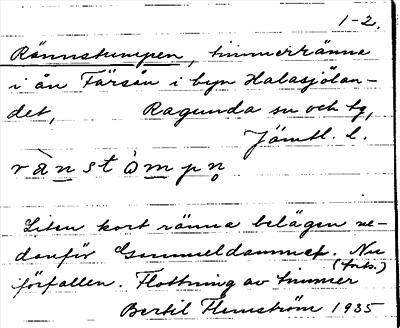 1-2.
Rännstumpen, timmerränna
i ån Färsån i byn Halasjölan-
det, Ragunda sn och tg,
Jämtl. l.
rànstòmpn̥
Liten kort ränna belägen ne-
danför Gammeldammen. Nu
(forts.)
förfallen. Flottning av timmer
Bertil Flemström 1935